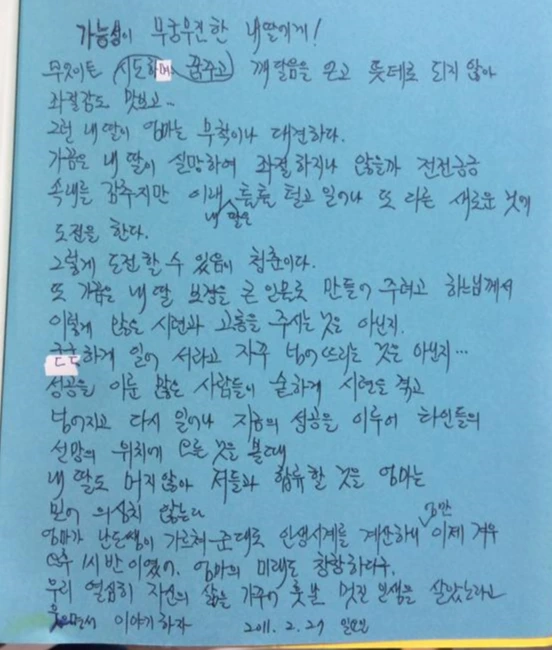 가능성이 무궁무진한 내딸에게!
무엇이든 시도하며 꿈꾸고 깨달음을 얻고 뜻데로 되지 않아
좌절감도 맛보고..
그런 내딸이 엄마는 무척이나 대견하다.
가끔은 내 딸이 실망하여 좌절하지나 않을까 전전긍긍
속내를 감추지만 이내 내 딸은 툴툴 털고 일어나 또 다른 새로운 것에
도전을 한다.
그렇게 도전할 수 있음이 청춘이다.
또 가끔은 내 딸 보경을 큰 인물로 만들어 주려고 하느님께서
이렇게 많은 시련과 고통을 주시는 것은 아닌지.
든든하게 일어 서라고 자꾸 넘어뜨리는 것은 아닌지...
성공을 이룬 많은 사람들이 숱하게 시련을 겪고
넘어지고 다시 일어나 지금의 성공을 이루어 타인들의
선망의 위치에 오른 것을 볼때
내 딸도 머지않아 저들과 합류할 것을 엄마는
믿어 의심치 않는다
엄마가 란도쌤이 가르쳐준대로 인생시계를 계산하니 이제 겨우
오후 1시 반이였어. 엄마의 미래도 창창하다구.
우리 열심히 자신의 삶을 가꾸어 훗날 멋진 인생을 살았노라고
웃으면서 이야기하자 2011. 2. 27 일요일